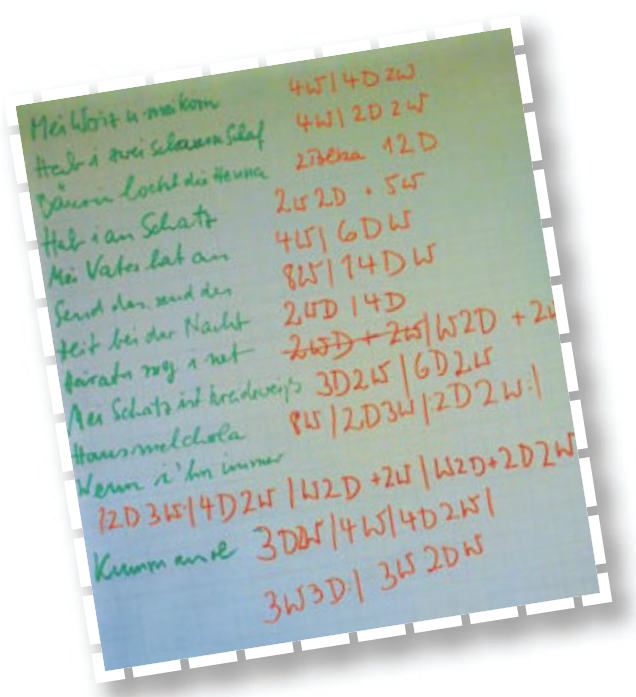 Mei Wirt u meikom 4W | 4D 2W
Hab i zwei schwarze Schaf 4W | 2D 2W
Bäurin lockt die Henna 12D
Hab i an Schatz 2W 2D + 5W
Mei Vater hat an 4W | 6D W
Send des, send des 8W | 14D W
Heit bei der Nacht 2WD | 4D
Heirate mog i net 2WD + 2W | W2D + 2W
Mei Schatz ist kreideweiß 3D2W | 6D2W
Hansmelchola 8W | 2D3W | 2D2W :|
Wenn i ihn immer
12D 3W | 4D2W | W2D + 2W | W2D + 2D2W
Kumm 3D2W | 4W | 4D2W |
3W3D | 3W 2DW